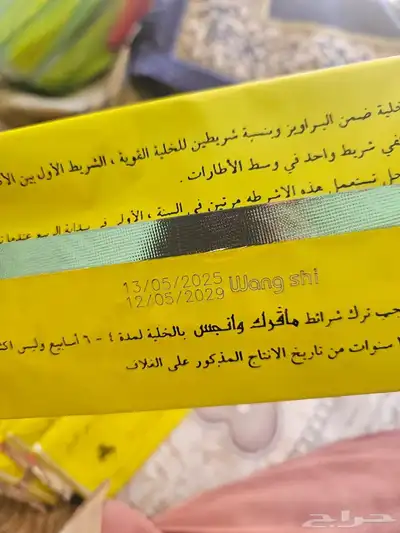 خلية ضمن البراويز وبنسبة شريطين للخلية القوية ، الشريط الأول بين الأ
في شريط واحد في وسط الأطارات .
حل تستعمل هذه الاشرطه مرتين في السنة ، الأولى في بداية الربيع عندما
13/05/2025 Wang shi
12/05/2029
جب ترك شرائط مافرك وانجس بالخلية لمدة ٤ - ٦ أسابيع وليس اكث
سنوات من تاريخ الانتاج المذكور على الغلاف
حراج